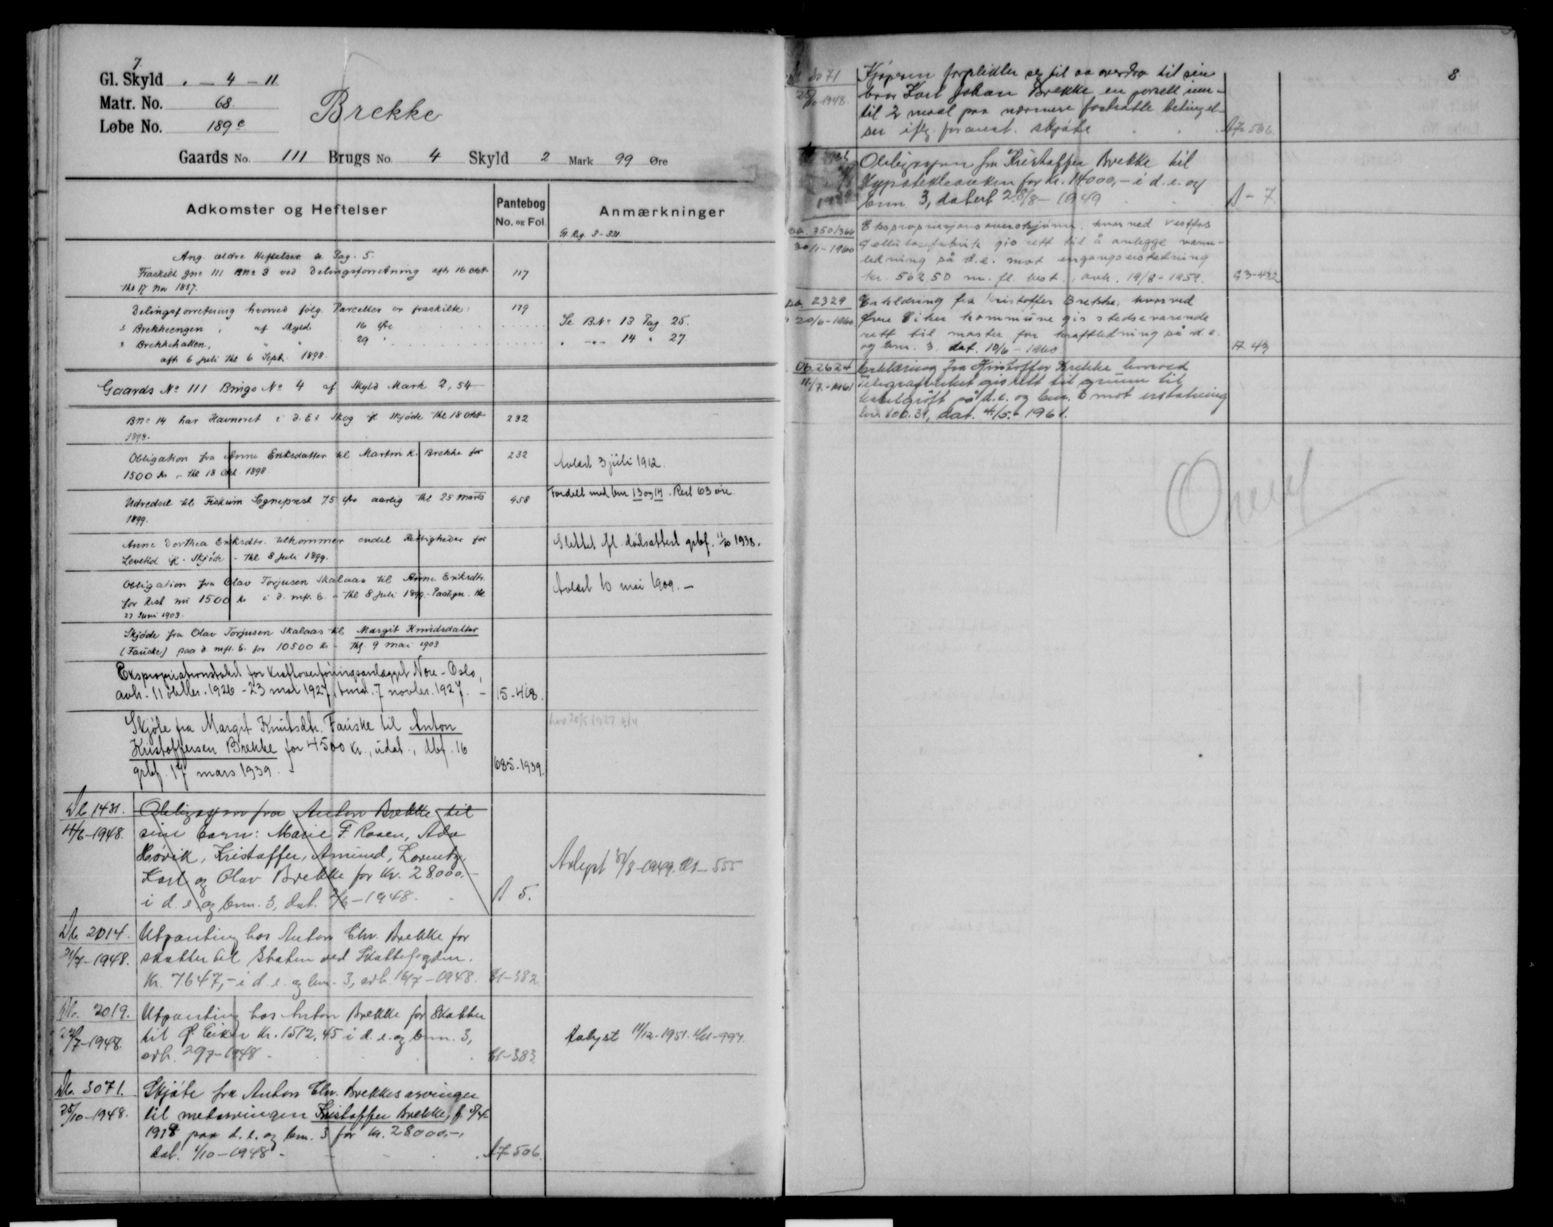 7
Gl. Skyld . – 4 – 11
Matr. No. 68
Løbe No. 189c
Brekke
Gaards No. 111 Brugs No. 4 Skyld 2 Mark 99 Øre
Adkomster og Heftelser
Pantebog
No. og Fol.
Anmærkninger
Ang. ældre Heftelser se Pag. 5.
Fraskilt Gno 111 BNo 3 ved Delingsforretning afh. 16 Oktr 117
thl 17 Nov 1887.
Delingsforretning hvorved følg. Parceller er fraskilte: 179
Brekkeengen, af Skyld 16 Øre Se B.No 13 Pag 25.
Brekkehalten, " " 29 " " 14 " 27
afh 6 juli thl 6 Sept. 1898
Gaards No 111 Brugs No 4 af Skyld Mark 2,54
BNo 14 har Havneret i d. E.s Skog if. Skjøde thl 18 Oktr 232
1898.
Obligation fra Anne Eriksdatter til Martin K. Brekke for 232
1500 kr, thl 18 Okt. 1898 Avlæst 3 juli 1912.
Udredsel til Fiskum Sognepræst 75 Øre aarlig thl 25 Marts 458
1899.
Fordelt med bnr 13 og 14. Rest 63 øre
Anne Dorthea Eriksdtr. tilkommer endel Rettigheder for
Levetid if. Skjøde - thl 8 Juli 1899.
Slettet fl. dødsattest grbf. 11/10 1938.
Obligation fra Olav Torjusen Skalaas til Anne Eriksdtr.
for Rest nu 1500 kr i d. mft. b. - thl 8 Juli 1899. Paategn. thl
27 Juni 1903
Avlæst 10 mai 1909. –
Skjøde fra Olav Torjusen Skalaas til Margit Knudsdatter
(Fauske) paa d. mft. b. for 10500 kr - Thl. 9 mai 1903
Ekspropriationstakst for Kraftoverføringsanlægget Nore - Oslo,
avh. 11 - 1926 - 23 mai 1927, tinol. 7 novbr. 1927. – 15-418.
Skjøte fra Margit Knutsdtr. Fauske til Anton
Kristoffersen Brekke for 4500 kr., udat., dbf. 16
grbf. 17 mars 1939. 685-1939.
Db 1431. Obligasjon fra Anton Brekke til
11/6-1948. sine barn: Marie F. Rosen, Ada
Høvik, Kristoffer, Amund, Lorentz,
Karl og Olav Brekke for kr. 28000,–
i d. e. og bnr. 3, dat. 9/6-1948. A 5.
Avlyst 31/8-1949. – 555
Db 2014. Utpanting hos Anton Chr. Brekke for
21/7-1948. skatter til Staten ved Skattefogden.
Kr. 7647,– i d. e. og bnr. 3, avh. 16/7-1948. B1-382
Db. 2019. Utpanting hos Anton Brekke for skatter
22/7-1948. til Ø. Eiker kr. 1512,45 i d. e. og bnr. 3,
avh. 20/7-1948. B1-383
Avlyst 11/12-1951. – 994.
Db. 3071. Skjøte fra Anton Chr. Brekkes arvinger
25/10-1948. til medarvingen Kristoffer Brekke,
1918 paa d. e. og bnr. 3 for kr. 28000,–,
dat. 4/10-1948. A7-506.
8
3071 Kjøperen forplikter seg til aa overdra til sin
25/10-1948. bror Karl Johan Brekke en parsell inn-
til 2 maal paa nærmere fastsatte betingel-
ser iflg. foranst. skjøte A7-506.
Obligasjon fra Kristoffer Brekke til
Hypotekbanken for kr. 14000,– i d. e. og
bnr 3, datert 29/8-1949 A-7.
350/366 Ekspropriasjonsoverskjønn, hvorved Vestfos
30/1-1960 Cellulosefabrik gis rett til å anlegge vann-
ledning på d. e. mot engangserstatning
kr. 562.50 m. fl. best., avh. 19/8-1959. 93-432
Db. 2329 Erklæring fra Kristoffer Brekke, hvorved
20/6-1960 Øvre Eiker kommune gis stedsevarende
rett til master for kraftledning på d. e.
og bnr. 3. dat. 10/6-1960 A 43
Db. 2624 Erklæring fra Kristoffer Brekke hvorved
11/7-1961 Telegrafverket gis rett til grunn til
kabelgrøft på d. e. og bnr. 3 mot erstatning
kr. 606.31, dat. 4/5.-1961.
Overf